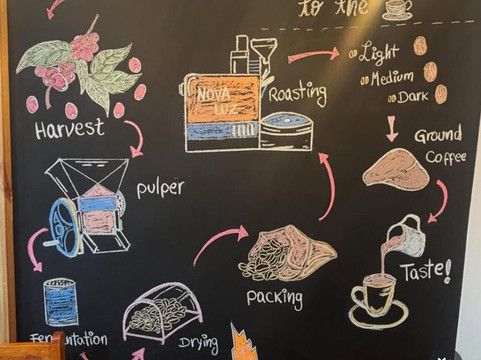 to the
Harvest
pulper
Fermentation
Drying
packing
NOVA
LUZ
Roasting
Light
Medium
Dark
Ground
Coffee
Taste!